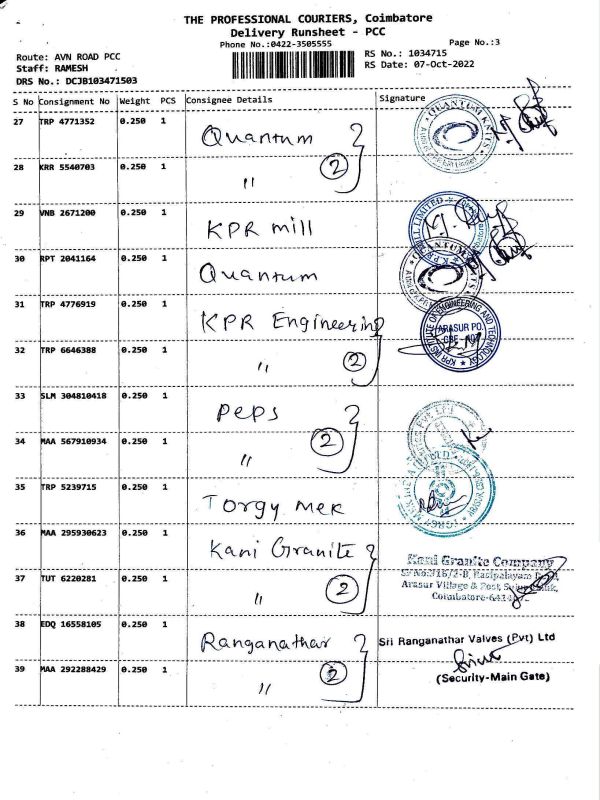 THE PROFESSIONAL COURIERS, Coimbatore
Delivery Runsheet - PCC
Phone No.:0422-3505555
Page No.:3
Route: AVN ROAD PCC
RS No.: 1034715
Staff: RAMESH
RS Date: 07-Oct-2022
DRS No.: DCJB103471503
S No Consignment No Weight PCS Consignee Details Signature
27 TRP 4771352 0.250 1 Quantum
28 KRR 5540703 0.250 1 〃 2
29 VNB 2671200 0.250 1 KPR mill
30 RPT 2041164 0.250 1 Quantum
31 TRP 4776919 0.250 1 KPR Engineering
32 TRP 6646388 0.250 1 〃 2
33 SLM 304810418 0.250 1 Peps
34 MAA 567910934 0.250 1 〃 2
35 TRP 5239715 0.250 1 Torgy Mek
36 MAA 295930623 0.250 1 Kani Granite
37 TUT 6220281 0.250 1 〃 2
38 EDQ 16558105 0.250 1 Ranganathar
39 MAA 292288429 0.250 1 〃 2
QUANTUM KNITS
MILL LIMITED
QUANTUM
KPR INSTITUTE OF ENGINEERING AND TECHNOLOGY
ARASUR PO.
Kani Granite Company
Arasur Village & Post,
Coimbatore
Sri Ranganathar Valves (Pvt) Ltd
(Security-Main Gate)